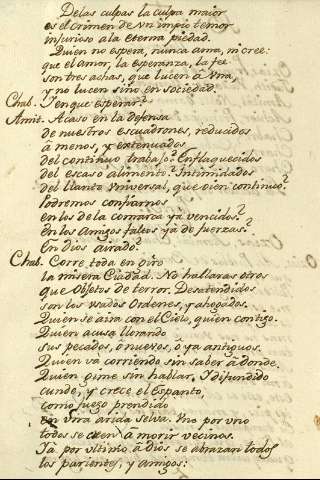 De las culpas la culpa maior
es el crimen de vn impio temor
injurioso a la eterna piedad.
Quien no espera, nunca ama, ni cree:
que el amor, la esperanza, la fee
son tres achas, que lucen â vna,
y no lucen sino en sociedad.
Chab. Y en que esperar?
Amit. Acaso en la defensa
de nuestros escuadrones, reducidos
â menos, y extenuados
del continuo trabajo? Enflaquecidos
del escaso alimento? Intimidados
del llanto vniversal, que oien continuo?
Podremos confiarnos
en los de la comarca ya vencidos?
En los Amigos faltos ya de fuerzas?
En Dios airado?
Chab. Corre toda en giro
la misera Ciudad. No hallaras otros
que Objetos de terror. Desatendidos
son los vsados Ordenes, y ahogados.
Quien se aira con el Cielo, quien contigo.
Quien acusa llorando
sus pecados, ô nuevos, ô ya antiguos.
Quien va corriendo sin saber â donde.
Quien gime sin hablar, Y difundido
cunde, y crece el Espanto,
como fuego prendido
en vna arida selva. Vno por vno
todos se creen â morir vecinos.
Ya por vltimo â Dios se abrazan todos
los parientes, y amigos: